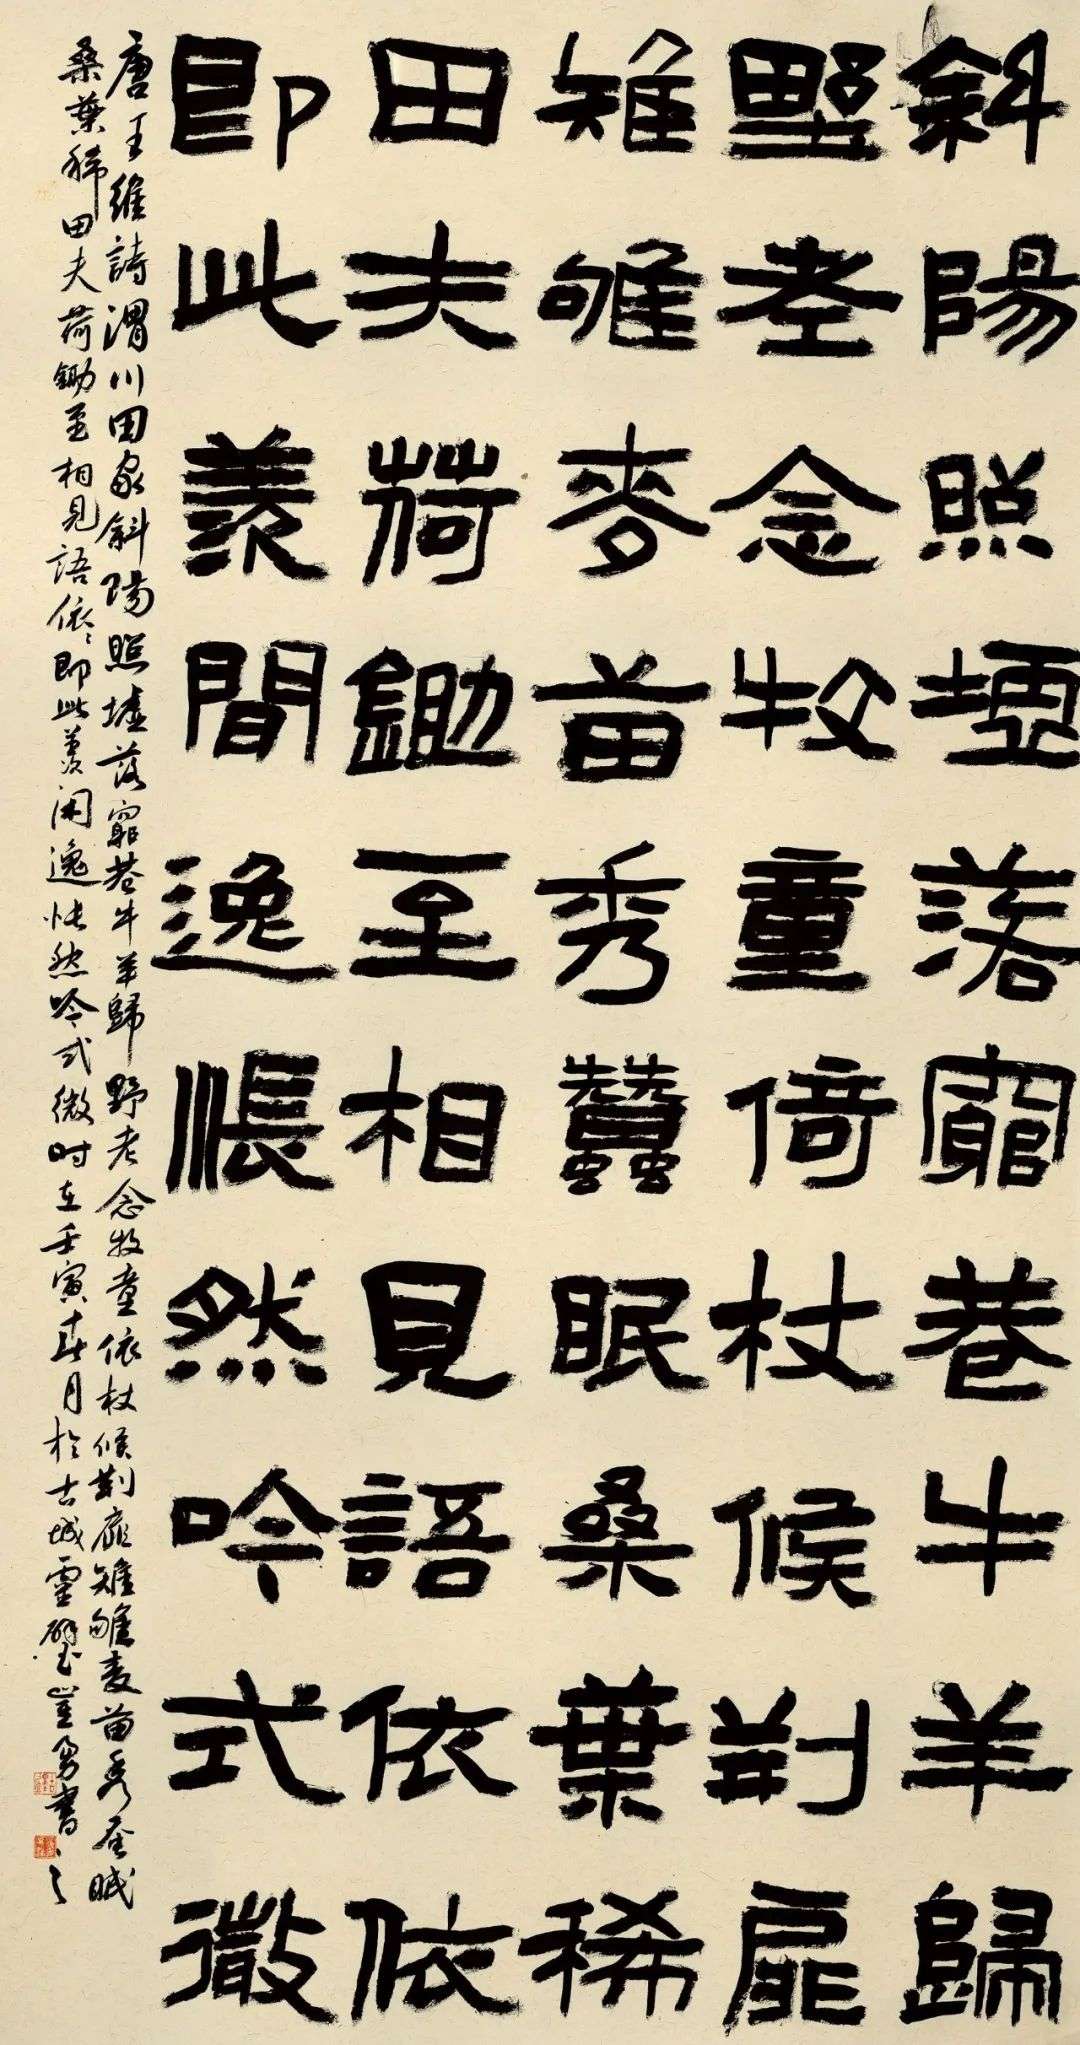 斜陽照墟落窮巷牛羊歸
野老念牧童倚杖候荆扉
雉雊麥苗秀蠶眠桑葉稀
田夫荷鋤至相見語依依
即此羨間逸悵然吟式微
唐王維詩渭川田家斜陽照墟落窮巷牛羊歸野老念牧童依杖候荆扉雉雊麦苗秀蚕眠
桑葉稀田夫荷鋤至相見語依〻即此羨闲逸悵然吟式微时在壬寅春月於古城靈璧書之